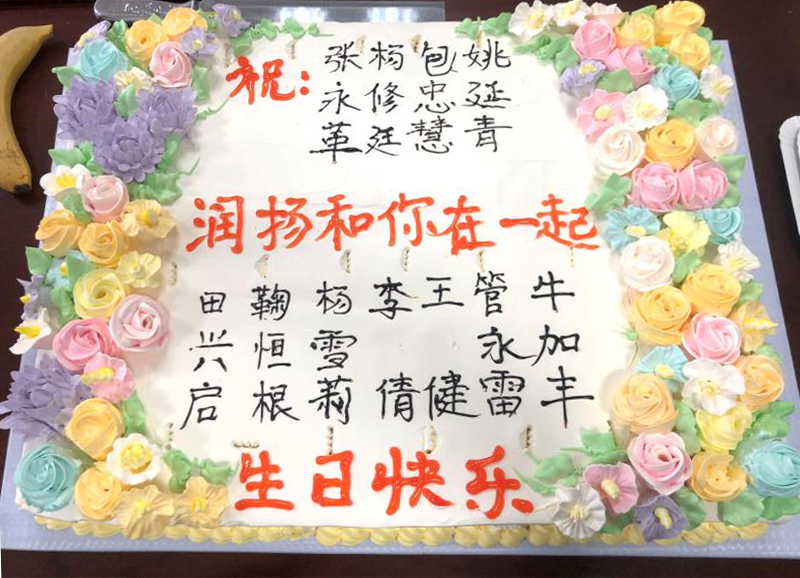 祝：
张杨包姚
永修忠延
革廷慧青
润扬和你在一起
田鞠杨李王管牛
兴恒雪永加
启根莉倩健雷丰
生日快乐